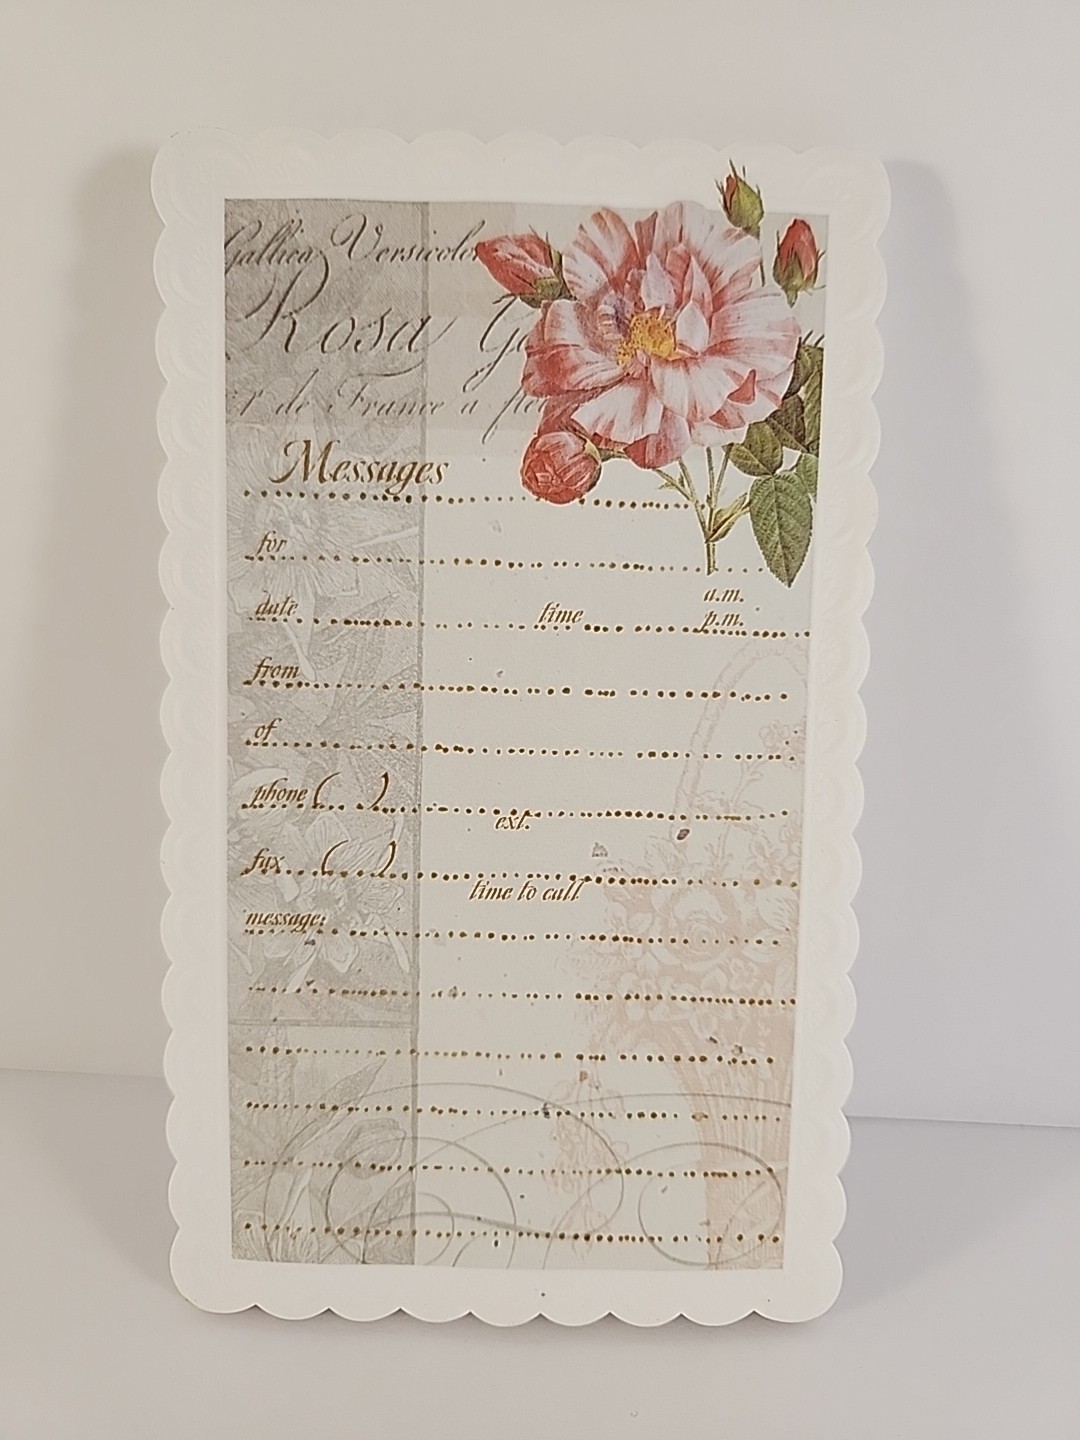 Gallica Versicolor
Rosa Ga
r de France a fle
Messages
for
date time a.m.
p.m.
from
of
phone ( )
ext.
fax ( )
time to call
message: